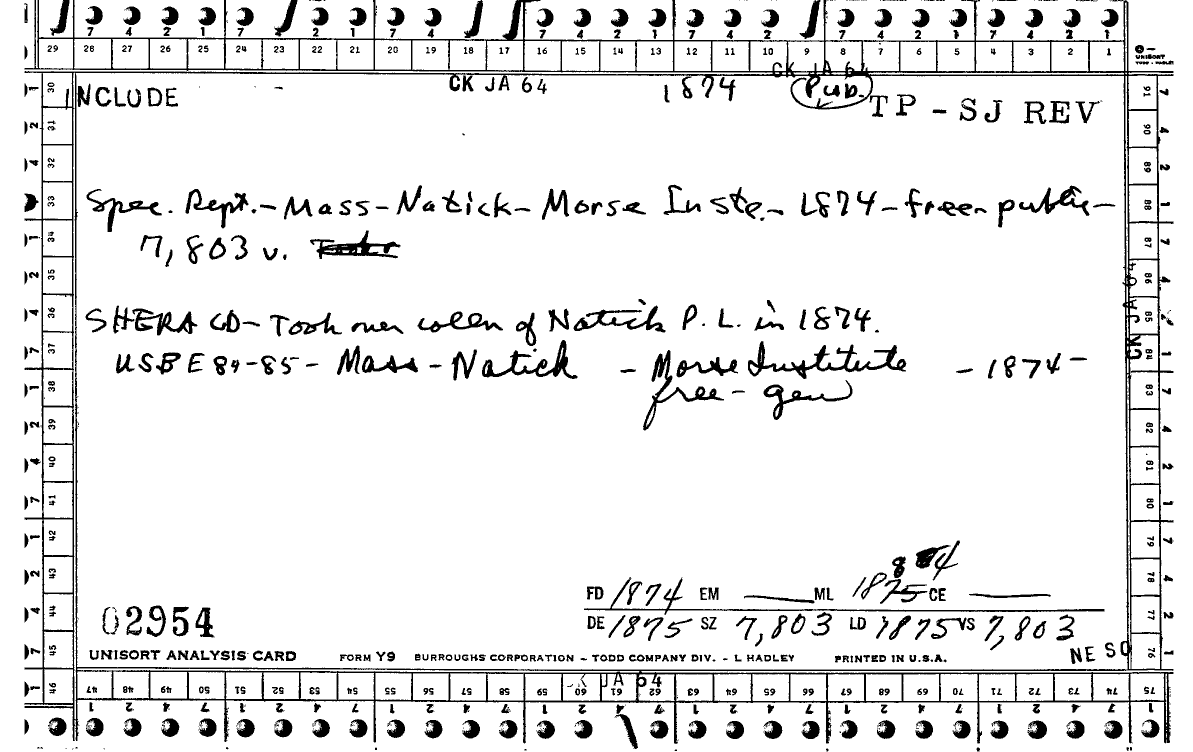 7 4 2 1 7 4 2 1 7 4 2 1 7 4 2 1 7 4 2 1 7 4 2 1
29 28 27 26 25 24 23 22 21 20 19 18 17 16 15 14 13 12 11 10 9 8 7 6 5 4 3 2 1
UNISORT
CK JA 64
INCLUDE CK JA 64 1874 Pub. TP - SJ REV
Spec. Rept. - Mass - Natick - Morse Inste. - 1874 - free - public -
7,803 v.
SHERA CD - Took over collen of Natick P. L. in 1874.
USBE 84-85 - Mass - Natick - Morse Institute - 1874 -
free - gen
CK JA 64
FD 1874 EM — ML 1875 CE —
DE 1875 SZ 7,803 LD 1875 VS 7,803
02954
NE SO
UNISORT ANALYSIS CARD FORM Y9 BURROUGHS CORPORATION – TODD COMPANY DIV. – L HADLEY PRINTED IN U.S.A.
CK JA 64
30 31 32 33 34 35 36 37 38 39 40 41 42 43 44 45 46
91 90 89 88 87 86 85 84 83 82 81 80 79 78 77 76
47 48 49 50 51 52 53 54 55 56 57 58 59 60 61 62 63 64 65 66 67 68 69 70 71 72 73 74 75